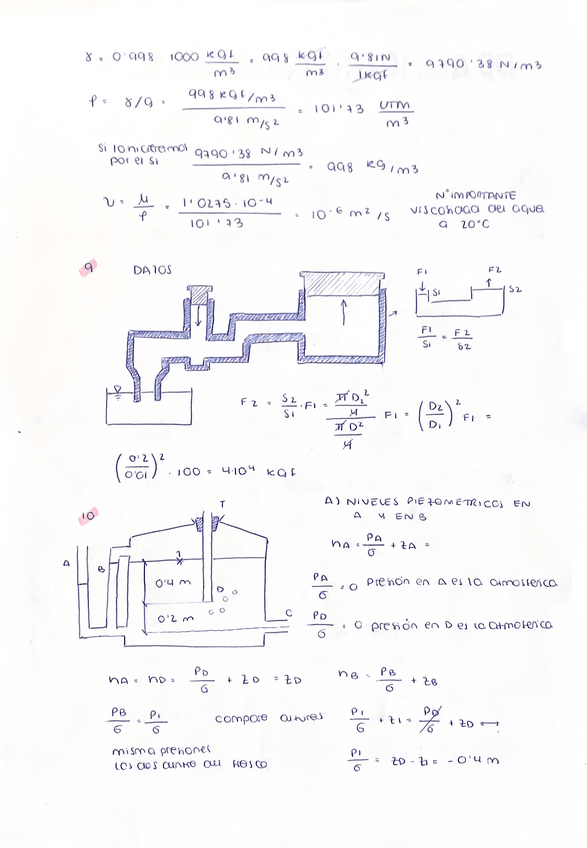 γ = 0'998 · 1000 KGf/m3 = 998 KGf/m3 · 9'81N/1KGf = 9790'38 N/m3
ρ = γ/g = 998 KGf/m3 / 9'81 m/s2 = 101'73 UTM/m3
Si lo hicieramos por el SI 9790'38 N/m3 / 9'81 m/s2 = 998 kg/m3
ν = μ/ρ = 1'0275·10-4 / 101'73 = 10-6 m2/s
Nº IMPORTANTE
viscosidad del agua
a 20°C
9 DATOS
F1 F2
S1 S2
F1/S1 = F2/S2
F2 = S2/S1 · F1 = (π D2²/4)/(π D²/4) F1 = (D2/D1)² F1 =
(0'2/0'01)² · 100 = 4·10⁴ KGf
10
T
A B 1 D C
0'4 m
0'2 m
A) NIVELES PIEZOMETRICOS EN
A Y EN B
hA = PA/γ + ZA =
PA/γ = 0 presión en A es la atmosferica
PD/γ = 0 presión en D es la atmosferica
hA = hD = PD/γ + ZD = ZD
hB = PB/γ + ZB
PB/γ = P1/γ comparte
P1/γ + Z1 = PD/γ + ZD
misma presiones
los dos del
P1/γ = ZD - Z1 = -0'4 m